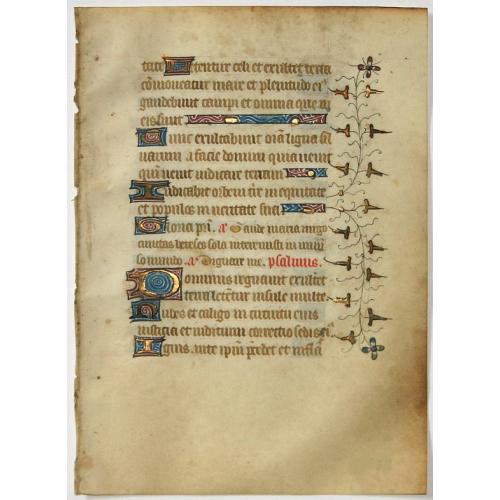 tate Letentur celi et exultet terra
cōmoveatur mare et plenitudo eiꝰ
gaudebunt campi et omnia que in
eis sunt
Tunc exultabunt om̄ia ligna sil
uarum a facie domini quia uenit
qm̄ uenit iudicare terram
Iudicabit orbem t̄re in equitate
et populos in ueritate sua
Gloria pr̄i. a. Gaude maria uirgo
cunctas hereses sola interemisti in uniu
so mundo. a. Dignare me. psalmus.
Dominus regnauit exultet
terra letētur insule multe
Nubes et caligo in circuitu eius
iusticia et iudicium correctio sedis eiꝰ
Ignis ante ip̄m p̄cedet et infla